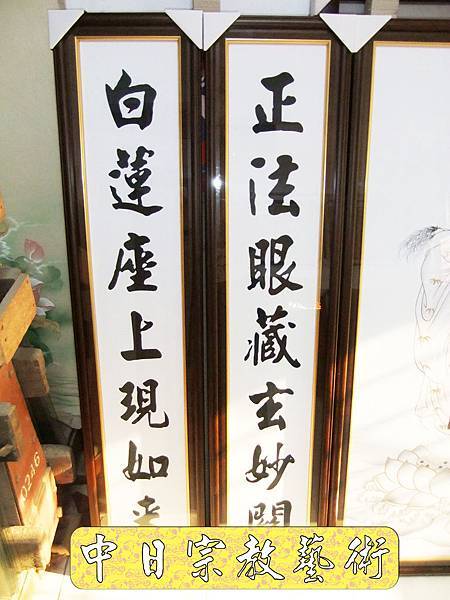 正法眼藏玄妙
白蓮座上現如來
0246
中日宗教藝術